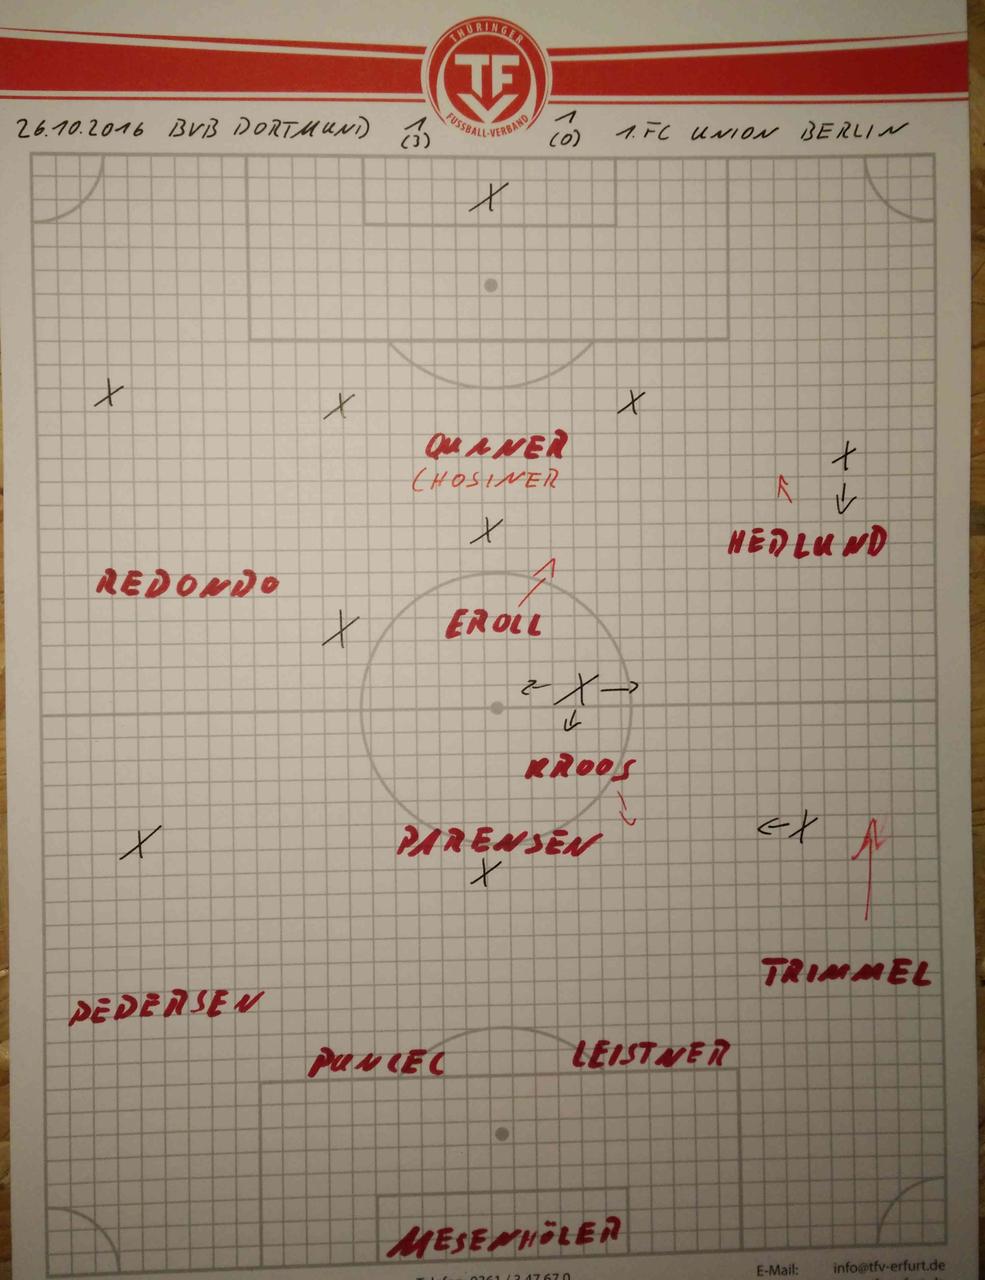 THÜRINGER
TFV
FUSSBALL-VERBAND
26.10.2016 BVB DORTMUND 1 (3) 1 (0) 1.FC UNION BERLIN
X
X X X
QUANER
CHOSINER
X
X
HEDLUND
REDONDO
EROLL
X
X
KROOS
PARENSEN
X
X
X
TRIMMEL
PEDERSEN
PUNCEC
LEISTNER
MESENHÖLER
Telefon: 0361 / 3 47 67 0
E-Mail: info@tfv-erfurt.de